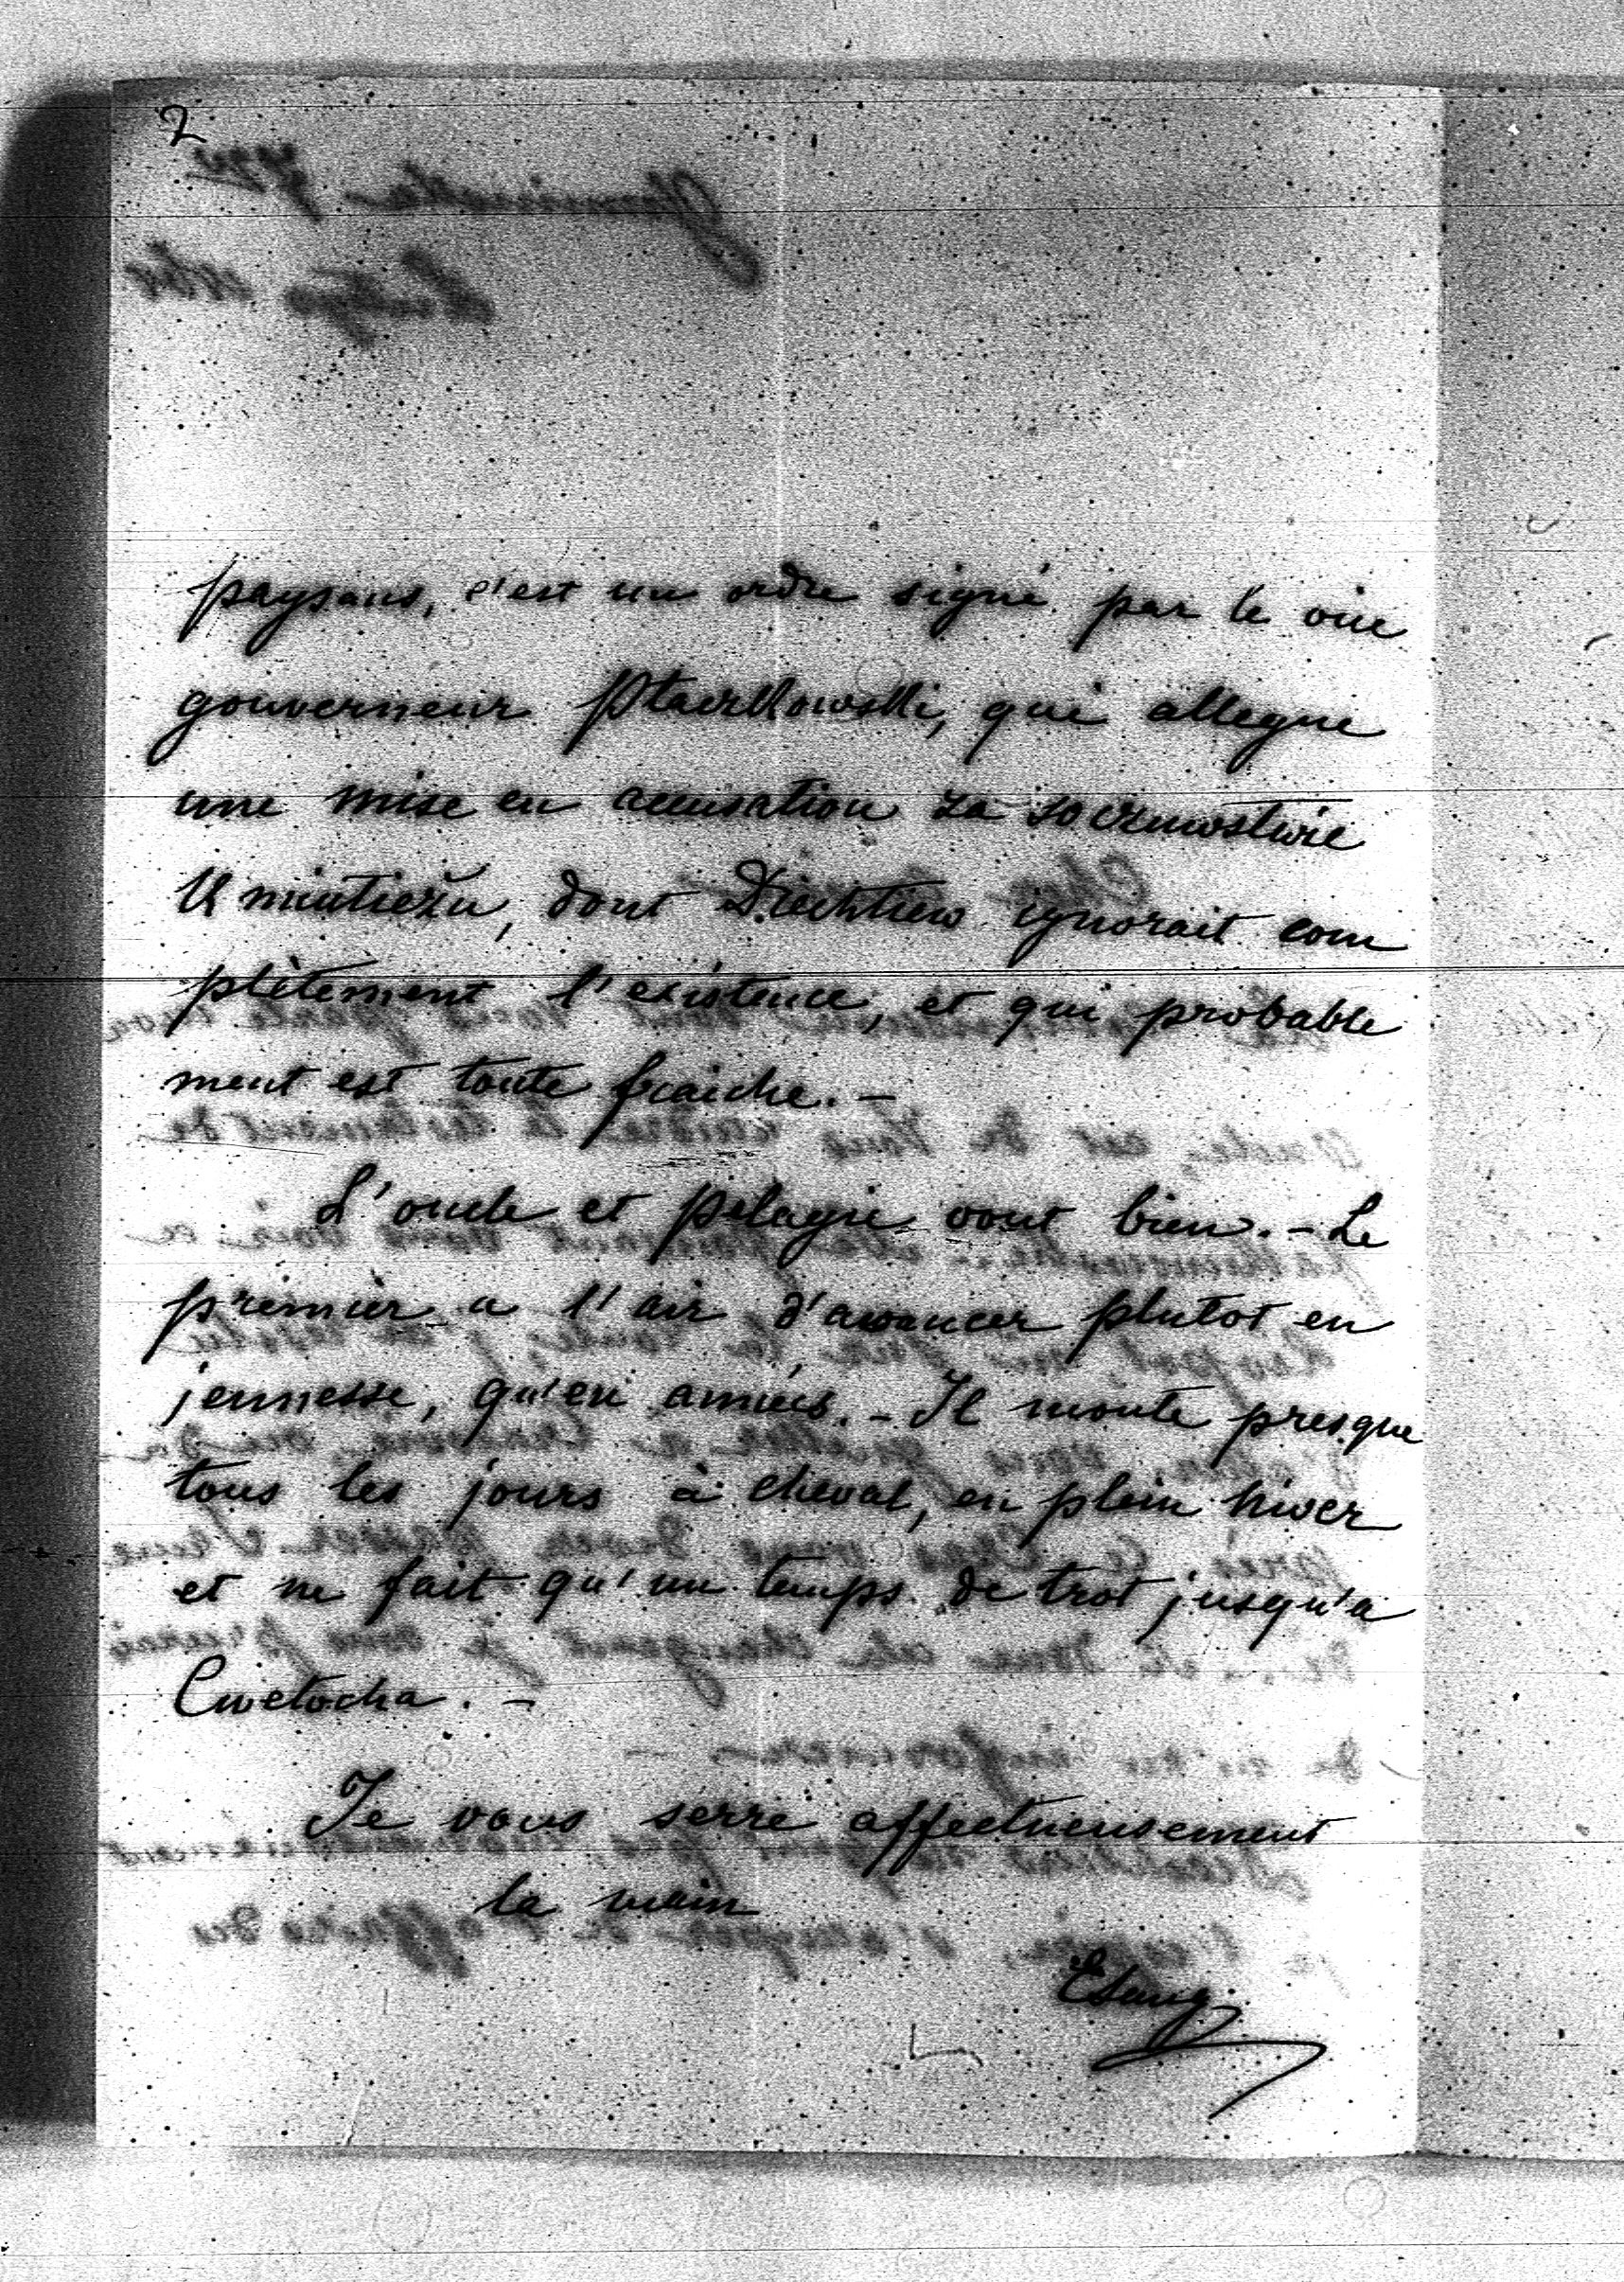 2
paysans, c'est un ordre signé par le vice
gouverneur Ptaszkowski, qui allegue
une mise en accusation za soczuwstwie
K miatieżu, dont ignorait com
plètement l'existence, et qui probable
ment est toute fraiche. –
L'oncle et Pélagie vont bien. – Le
premier a l'air d'avancer plutot en
jeunesse, qu'en années. – Il monte presque
tous les jours à cheval, en plein hiver
et ne fait qu'un temps de trot jusqu'à
Cwetocha. –
Je vous serre affectueusement
la main